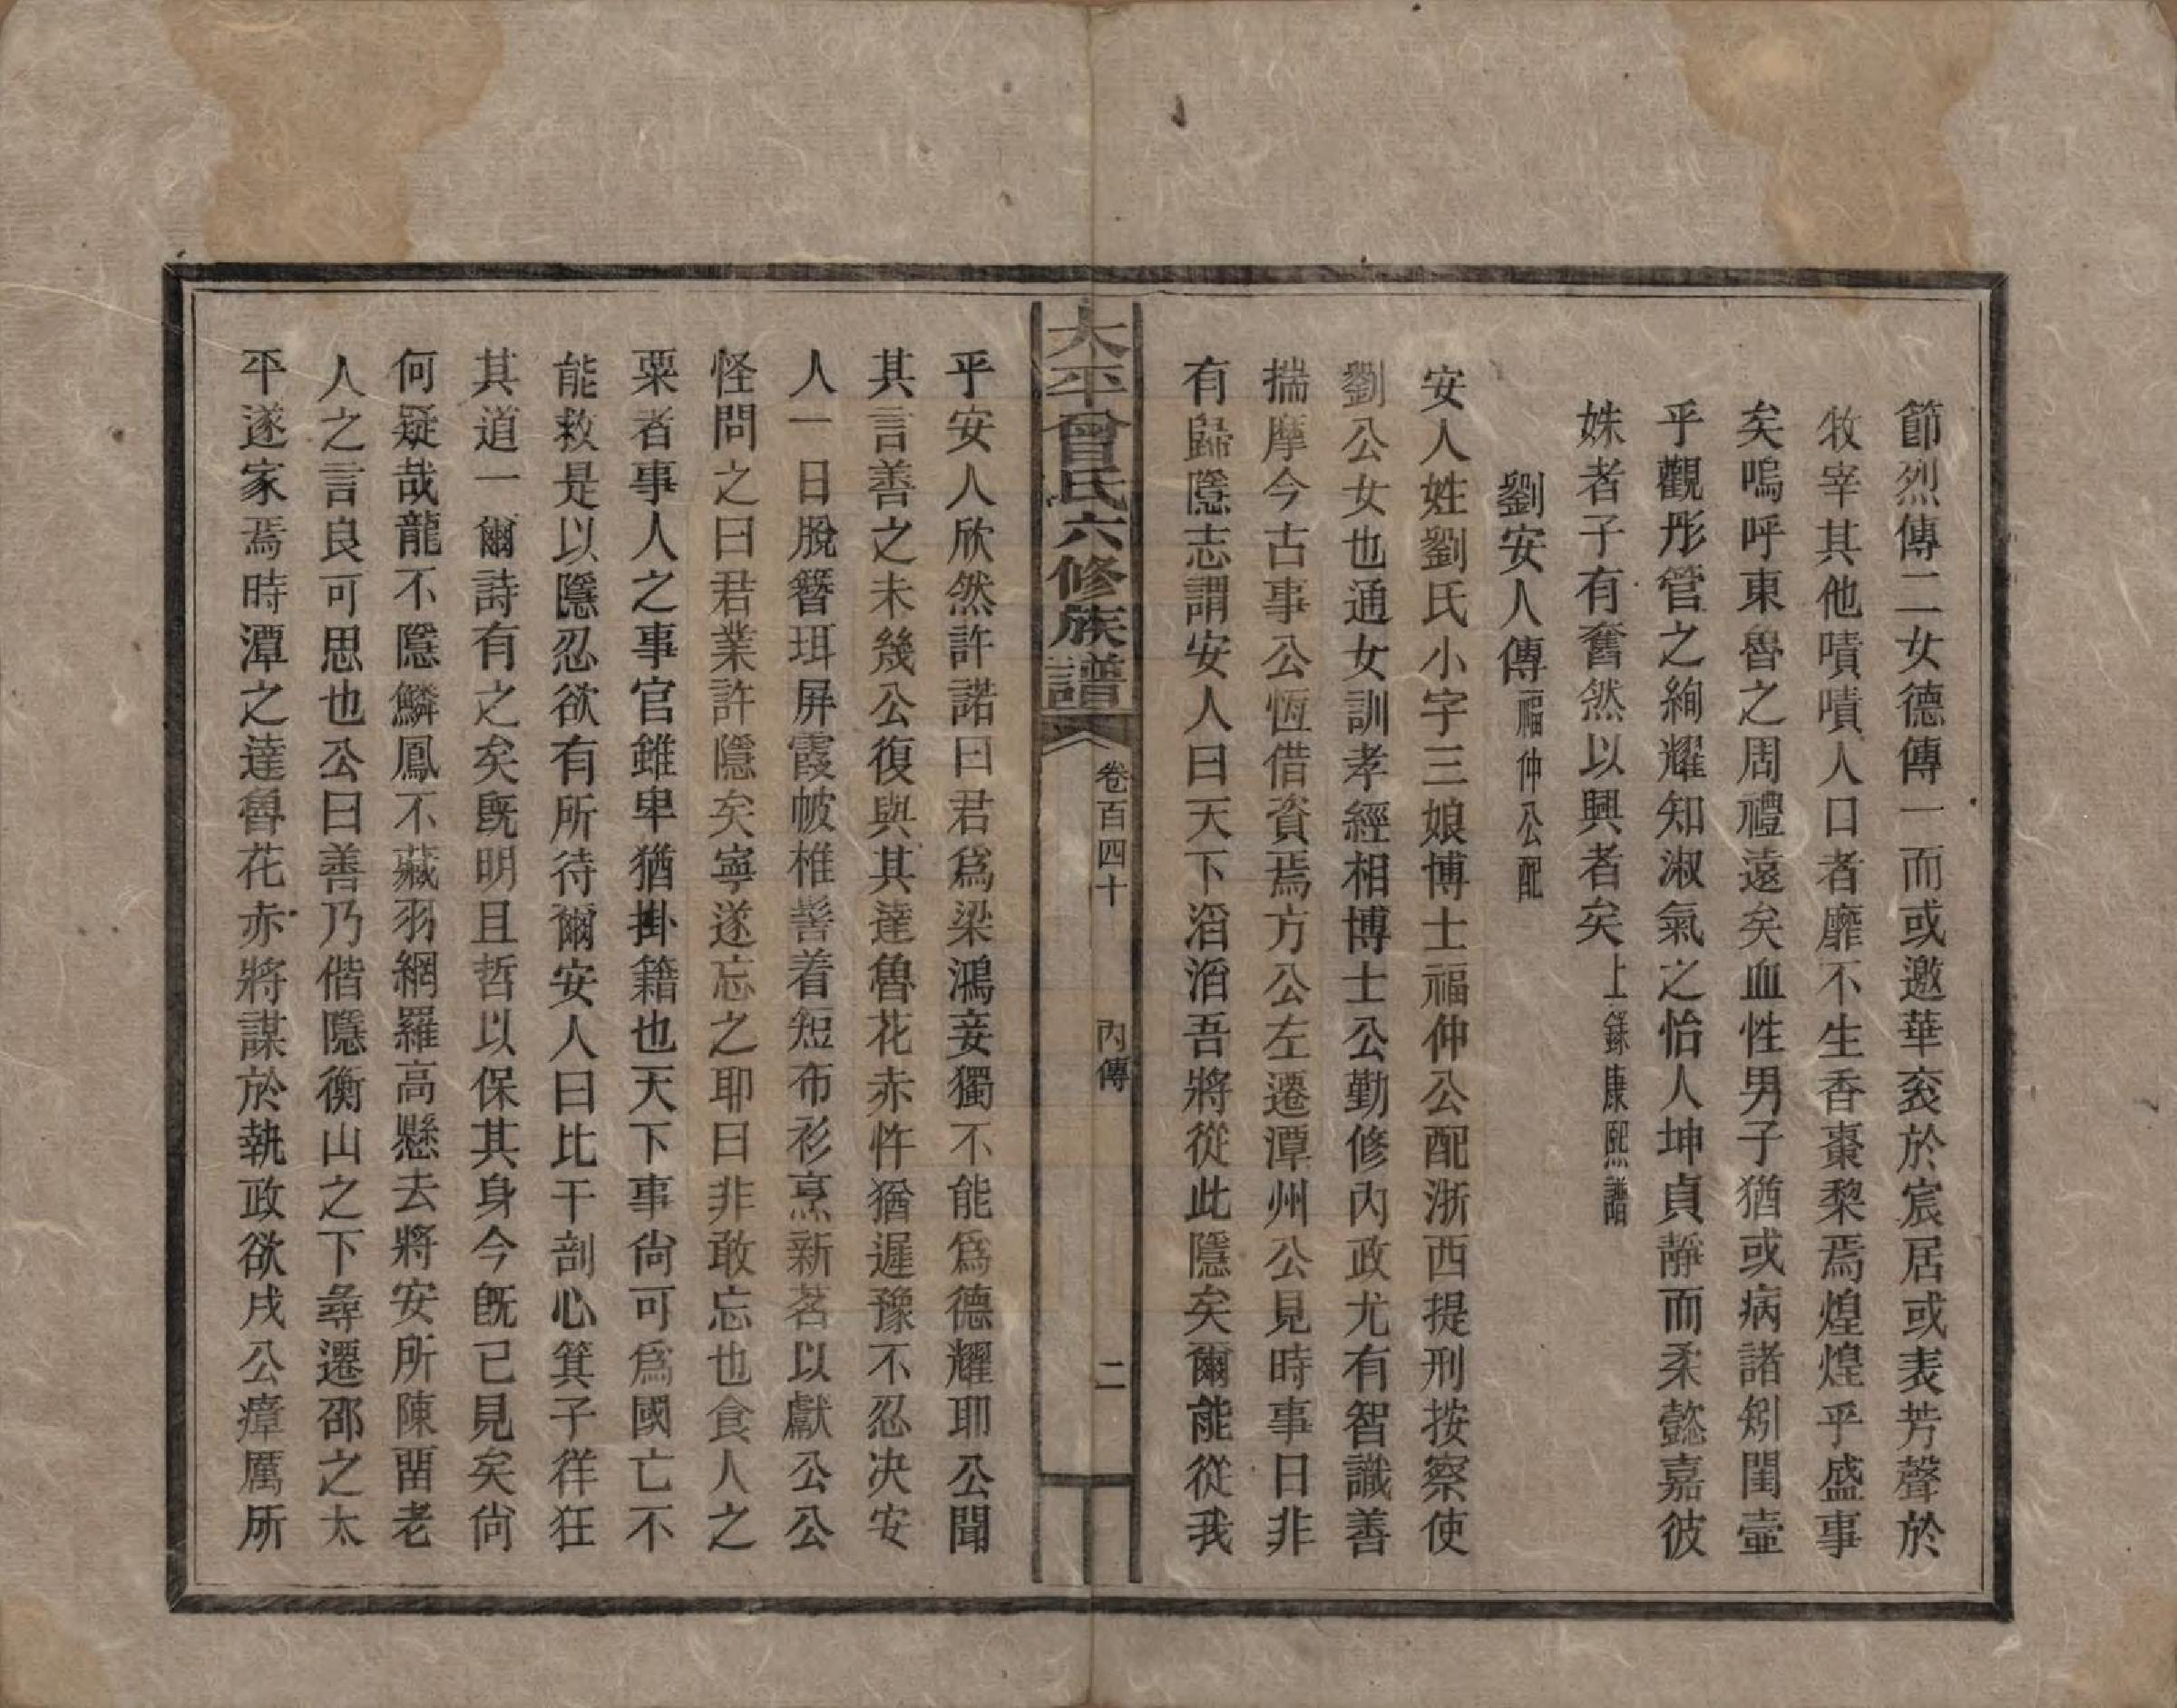 節烈傳二女德傳一而或邀華袞於宸居或表芳聲於
牧宰其他嘖嘖人口者靡不生香棗棃焉煌煌乎盛事
矣嗚呼東魯之周禮遠矣血性男子猶或病諸矧閨壼
乎觀彤管之絢耀知淑氣之怡人坤貞靜而柔懿嘉彼
姝者子有奮然以興者矣上錄康熙譜
劉安人傳福仲公配
安人姓劉氏小字三娘博士福仲公配浙西提刑按察使
劉公女也通女訓孝經相博士公勤修內政尤有智識善
揣摩今古事公恆借資焉方公左遷潭州公見時事日非
有歸隱志謂安人曰天下滔滔吾將從此隱矣爾能從我
太平曾氏六修族譜
卷百四十
內傳
二
乎安人欣然許諾曰君爲梁鴻妾獨不能爲德耀耶公聞
其言善之未幾公復與其達魯花赤忤猶遲豫不忍决安
人一日脫簪珥屏霞帔椎髻着短布衫烹新茗以獻公公
怪問之曰君業許隱矣寧遂忘之耶曰非敢忘也食人之
粟者事人之事官雖卑猶掛籍也天下事尙可爲國亡不
能救是以隱忍欲有所待爾安人曰比干剖心箕子徉狂
其道一爾詩有之矣旣明且哲以保其身今旣已見矣尙
何疑哉龍不隱鱗鳳不藏羽網羅高懸去將安所陳畱老
人之言良可思也公曰善乃偕隱衡山之下尋遷邵之太
平遂家焉時潭之達魯花赤將謀於執政欲戍公瘴厲所